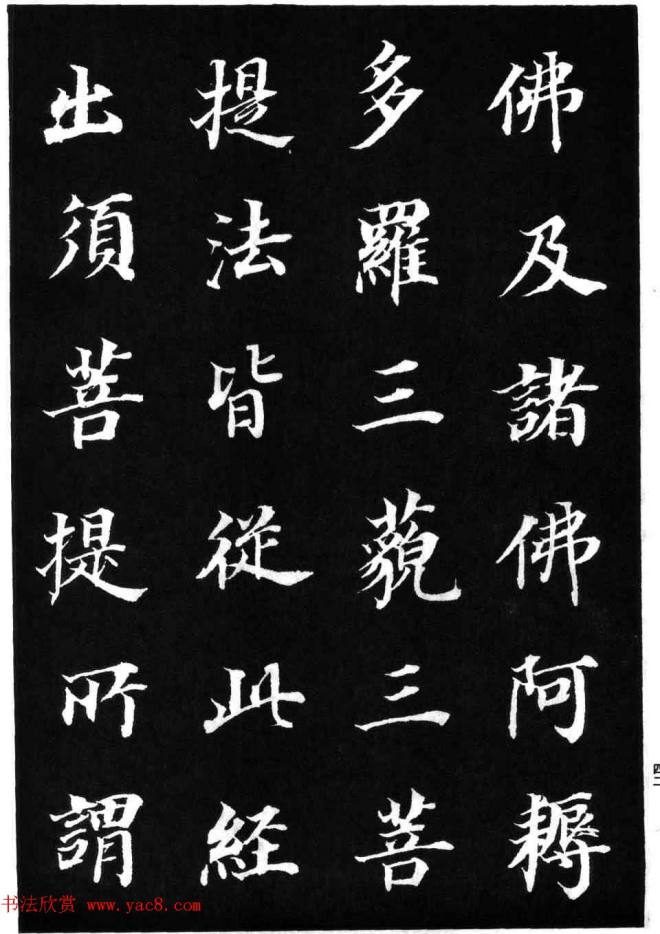 佛及諸佛阿耨
多羅三藐三菩
提法皆從此経
出須菩提所謂
四二
书法欣赏 www.yac8.com